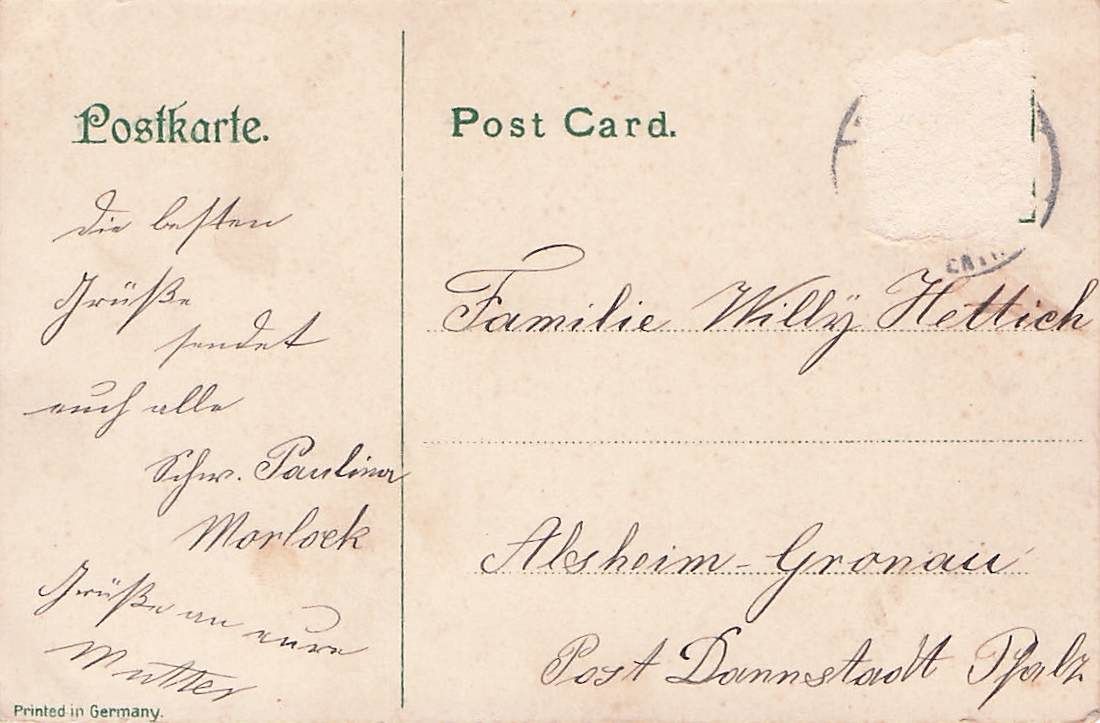 Postkarte.
Die besten
Grüße
sendet
euch alle
Schw. Paulina
Morlock
Grüße an eure
Mutter
Printed in Germany.
Post Card.
Familie Willÿ Hettich
Alsheim-Gronau
Post Dannstadt Pfalz